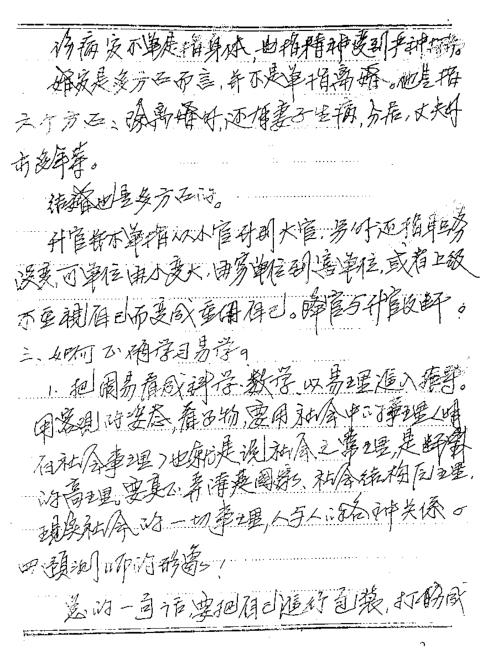 诊病灾不单是指身体，也指精神受到
婚灾是多方面而言，并不是单指离婚。他是指
六个方面、除离婚外，还有妻子生病，分居，丈夫外
结婚也是多方面的。
升官并不单指从小官升到大官，另外还指职务
没变，可单位由小变大，由穷单位到富单位，或者上级
不重视自己而变成重用自己。降官与升官反断。
三、如何正确学习易学。
1、把周易看成科学、数学、以易理进入推导。
用客观的姿态，看事物，要用社会中的事理（明
白社会事理）也就是说社会之常理，是断卦
的高理，要真正弄清楚国家、社会结构原理，
现实社会的一切事理，人与人的各种关系。
四预测师的形象：
总的一句话，要把自己进行包装，打扮成